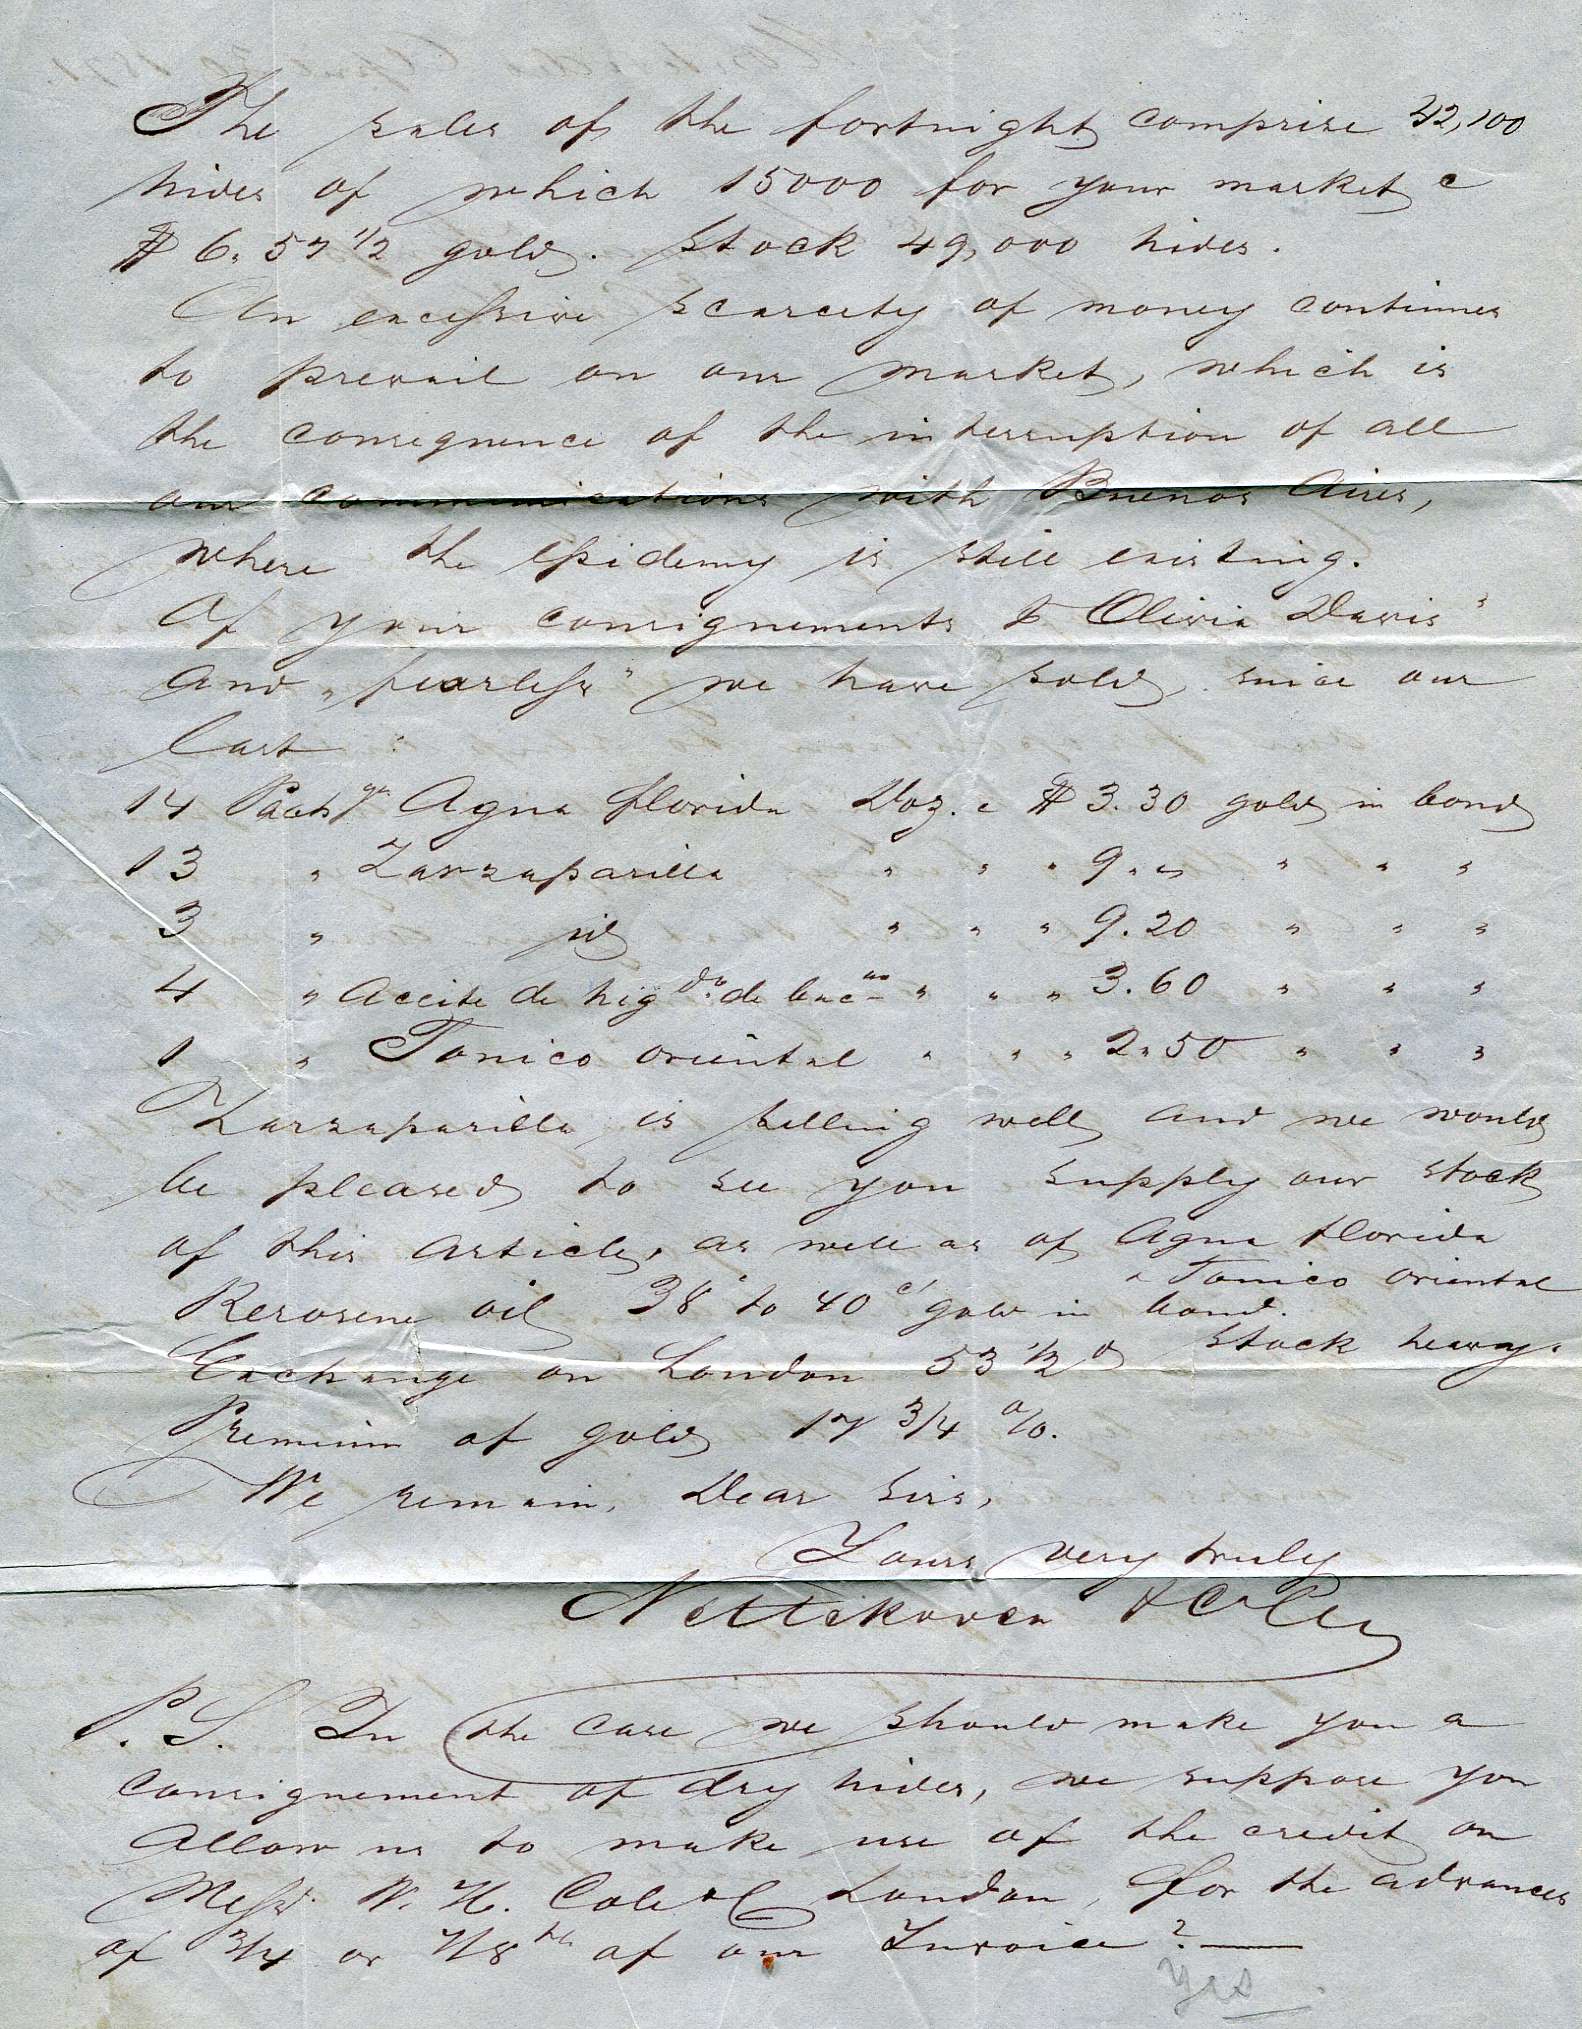 The sales of the fortnight comprise 42,100
hides of which 15000 for your market c
$ 6.57 1/2 gold. Stock 49,000 hides.
An excessive scarcity of money continues
to prevail on our market, which is
the consequence of the interruption of all
our communications with Buenos Aires,
where the epidemy is still existing.
Of your consignements Olivia Davis"
and "fearless" we have sold, since our
last :
14 Packgs Agua florida Doz. c $ 3.30 gold in bond
13 " Zarzaparilla " " " 9. " " "
3 " id " " " 9.20 " " "
4 " Aceite de higdo. de bacao " " " 3.60 " " "
1 " Tonico oriental " " " 2.50 " " "
Zarzaparilla is selling well and we would
be pleased to see you supply our stock
of this article, as well as of Agua florida
& Tonico oriental
Kerosene oil 38 to 40 cs gold in bond.
Stock heavy.
Exchange on London 53 1/2 d
Premium of gold 17 3/4 %.
We remain, Dear Sirs,
Yours very truly
Nettekoven & Cie
P.S. In the case we should make you a
consignement of dry hides, we suppose you
allow us to make use of the credit on
Messrs W. H. Cole & C London, for the advances
of 3/4 or 7/8ths of our Invoice ? —
Yes.